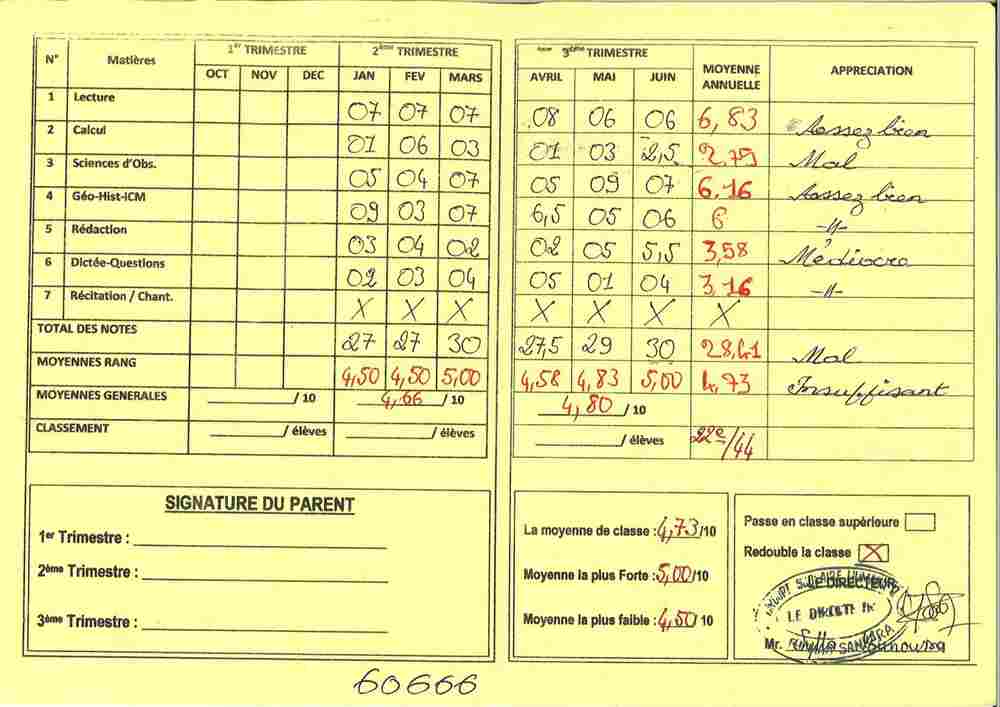 N° Matières 1er TRIMESTRE 2ème TRIMESTRE 3ème TRIMESTRE MOYENNE ANNUELLE APPRECIATION
OCT NOV DEC JAN FEV MARS AVRIL MAI JUIN
1 Lecture 07 07 07 08 06 06 6,83 Assez bien
2 Calcul 01 06 03 01 03 2,5 2.75 Mal
3 Sciences d'Obs. 05 04 07 05 09 07 6.16 Assez bien
4 Géo-Hist-ICM 09 03 07 6,5 05 06 6 -//-
5 Rédaction 03 04 02 02 05 5,5 3,58 Médiocre
6 Dictée-Questions 02 03 04 05 01 04 3,16 -//-
7 Récitation / Chant. X X X X X X X
TOTAL DES NOTES 27 27 30 27,5 29 30 28,41 Mal
MOYENNES RANG 4,50 4,50 5,00 4,58 4,83 5,00 4,73 Insuffisant
MOYENNES GENERALES / 10 4,66 / 10 4,80 / 10
CLASSEMENT / élèves / élèves / élèves 22e/44
SIGNATURE DU PARENT
1er Trimestre :
2ème Trimestre :
3ème Trimestre :
La moyenne de classe : 4,73/10
Moyenne la plus Forte : 5,00/10
Moyenne la plus faible : 4,50/10
Passe en classe supérieure
Redouble la classe X
LE DIRECTEUR
Mr.
60666